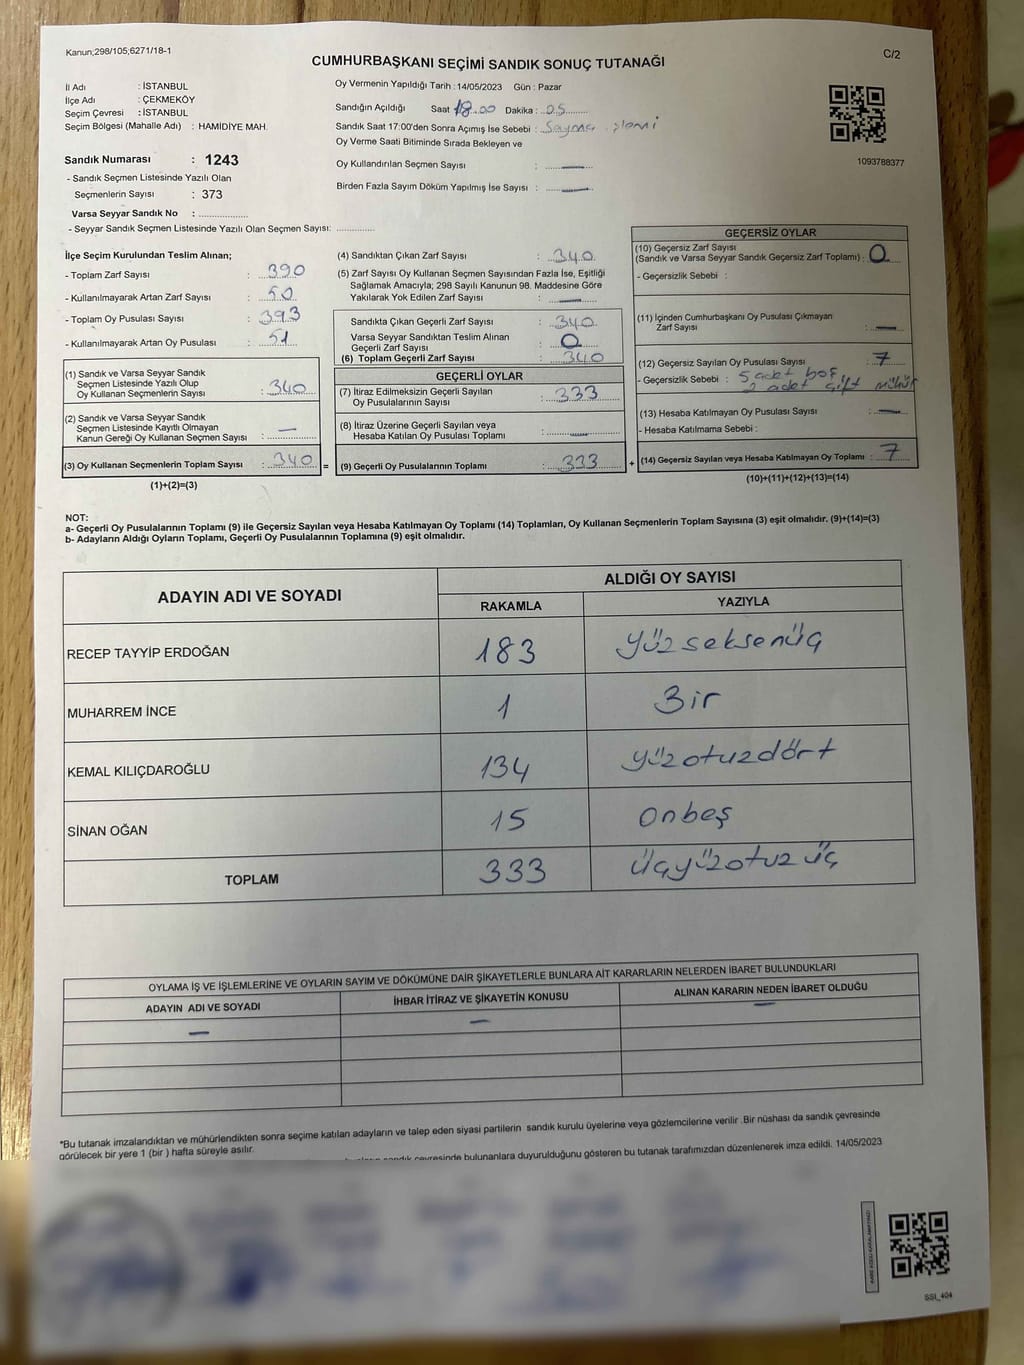 Kanun;298/105;6271/18-1
C/2
CUMHURBAŞKANI SEÇİMİ SANDIK SONUÇ TUTANAĞI
İl Adı : İSTANBUL
İlçe Adı : ÇEKMEKÖY
Seçim Çevresi : İSTANBUL
Seçim Bölgesi (Mahalle Adı) : HAMİDİYE MAH.
Sandık Numarası : 1243
- Sandık Seçmen Listesinde Yazılı Olan
Seçmenlerin Sayısı : 373
Varsa Seyyar Sandık No : ..................
- Seyyar Sandık Seçmen Listesinde Yazılı Olan Seçmen Sayısı: .............
Oy Vermenin Yapıldığı Tarih : 14/05/2023 Gün : Pazar
Sandığın Açıldığı Saat 18.00 Dakika : 05
Sandık Saat 17:00'den Sonra Açımış İse Sebebi : Sayma işlemi
Oy Verme Saati Bitiminde Sırada Bekleyen ve
Oy Kullandırılan Seçmen Sayısı : —
Birden Fazla Sayım Döküm Yapılmış İse Sayısı : —
1093788377
İlçe Seçim Kurulundan Teslim Alınan;
- Toplam Zarf Sayısı : 390
- Kullanılmayarak Artan Zarf Sayısı : 50
- Toplam Oy Pusulası Sayısı : 393
- Kullanılmayarak Artan Oy Pusulası : 51
(1) Sandık ve Varsa Seyyar Sandık
Seçmen Listesinde Yazılı Olup
Oy Kullanan Seçmenlerin Sayısı : 340
(2) Sandık ve Varsa Seyyar Sandık
Seçmen Listesinde Kayıtlı Olmayan
Kanun Gereği Oy Kullanan Seçmen Sayısı : —
(3) Oy Kullanan Seçmenlerin Toplam Sayısı : 340 =
(1)+(2)=(3)
(4) Sandıktan Çıkan Zarf Sayısı : 340
(5) Zarf Sayısı Oy Kullanan Seçmen Sayısından Fazla İse, Eşitliği
Sağlamak Amacıyla; 298 Sayılı Kanunun 98. Maddesine Göre
Yakılarak Yok Edilen Zarf Sayısı : —
Sandıkta Çıkan Geçerli Zarf Sayısı : 340
Varsa Seyyar Sandıktan Teslim Alınan
Geçerli Zarf Sayısı : 0
(6) Toplam Geçerli Zarf Sayısı : 340
GEÇERLİ OYLAR
(7) İtiraz Edilmeksizin Geçerli Sayılan
Oy Pusulalarının Sayısı : 333
(8) İtiraz Üzerine Geçerli Sayılan veya
Hesaba Katılan Oy Pusulası Toplamı : —
(9) Geçerli Oy Pusulalarının Toplamı : 333 +
GEÇERSİZ OYLAR
(10) Geçersiz Zarf Sayısı
(Sandık ve Varsa Seyyar Sandık Geçersiz Zarf Toplamı) : 0
- Geçersizlik Sebebi :
(11) İçinden Cumhurbaşkanı Oy Pusulası Çıkmayan
Zarf Sayısı : —
(12) Geçersiz Sayılan Oy Pusulası Sayısı : 7
- Geçersizlik Sebebi : 5 adet boş
2 adet çift mühür
(13) Hesaba Katılmayan Oy Pusulası Sayısı : —
- Hesaba Katılmama Sebebi :
(14) Geçersiz Sayılan veya Hesaba Katılmayan Oy Toplamı : 7
(10)+(11)+(12)+(13)=(14)
NOT:
a- Geçerli Oy Pusulalarının Toplamı (9) ile Geçersiz Sayılan veya Hesaba Katılmayan Oy Toplamı (14) Toplamları, Oy Kullanan Seçmenlerin Toplam Sayısına (3) eşit olmalıdır. (9)+(14)=(3)
b- Adayların Aldığı Oyların Toplamı, Geçerli Oy Pusulalarının Toplamına (9) eşit olmalıdır.
ADAYIN ADI VE SOYADI ALDIĞI OY SAYISI
RAKAMLA YAZIYLA
RECEP TAYYİP ERDOĞAN 183 yüzseksenüç
MUHARREM İNCE 1 Bir
KEMAL KILIÇDAROĞLU 134 yüzotuzdört
SİNAN OĞAN 15 onbeş
TOPLAM 333 üçyüzotuzüç
OYLAMA İŞ VE İŞLEMLERİNE VE OYLARIN SAYIM VE DÖKÜMÜNE DAİR ŞİKAYETLERLE BUNLARA AİT KARARLARIN NELERDEN İBARET BULUNDUKLARI
ADAYIN ADI VE SOYADI İHBAR İTİRAZ VE ŞİKAYETİN KONUSU ALINAN KARARIN NEDEN İBARET OLDUĞU
— — —
*Bu tutanak imzalandıktan ve mühürlendikten sonra seçime katılan adayların ve talep eden siyasi partilerin sandık kurulu üyelerine veya gözlemcilerine verilir .Bir nüshası da sandık çevresinde
görülecek bir yere 1 (bir ) hafta süreyle asılır.
sandık çevresinde bulunanlara duyurulduğunu gösteren bu tutanak tarafımızdan düzenlenerek imza edildi. 14/05/2023
SSI_404